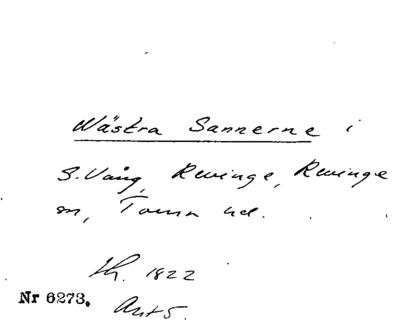 Wästra Sannerne i
S. Vång, Revinge, Revinge
sn, Torna hd.
Lh. 1822
Nr 6273.
Ant 5.